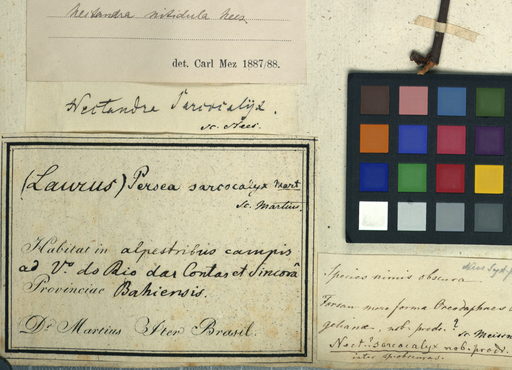 Nectandra nitidula Nees.
det. Carl Mez 1887/88.
Nectandra Sarcocalyx.
sc. Nees.
(Laurus) Persea sarcocalyx Mart
sc. Martius.
Habitat in alpestribus campis
ad V. do Rio das Contas et Sincorá
Provinciae Bahiensis.
Dr. Martius Iter Brasil.
Species nimis obscura
Forsan mera forma Oreodaphnes
nob. prodr.? sc. Meisn
Nect.? sarcocalyx nob. prodr.
inter sp. obscuras.